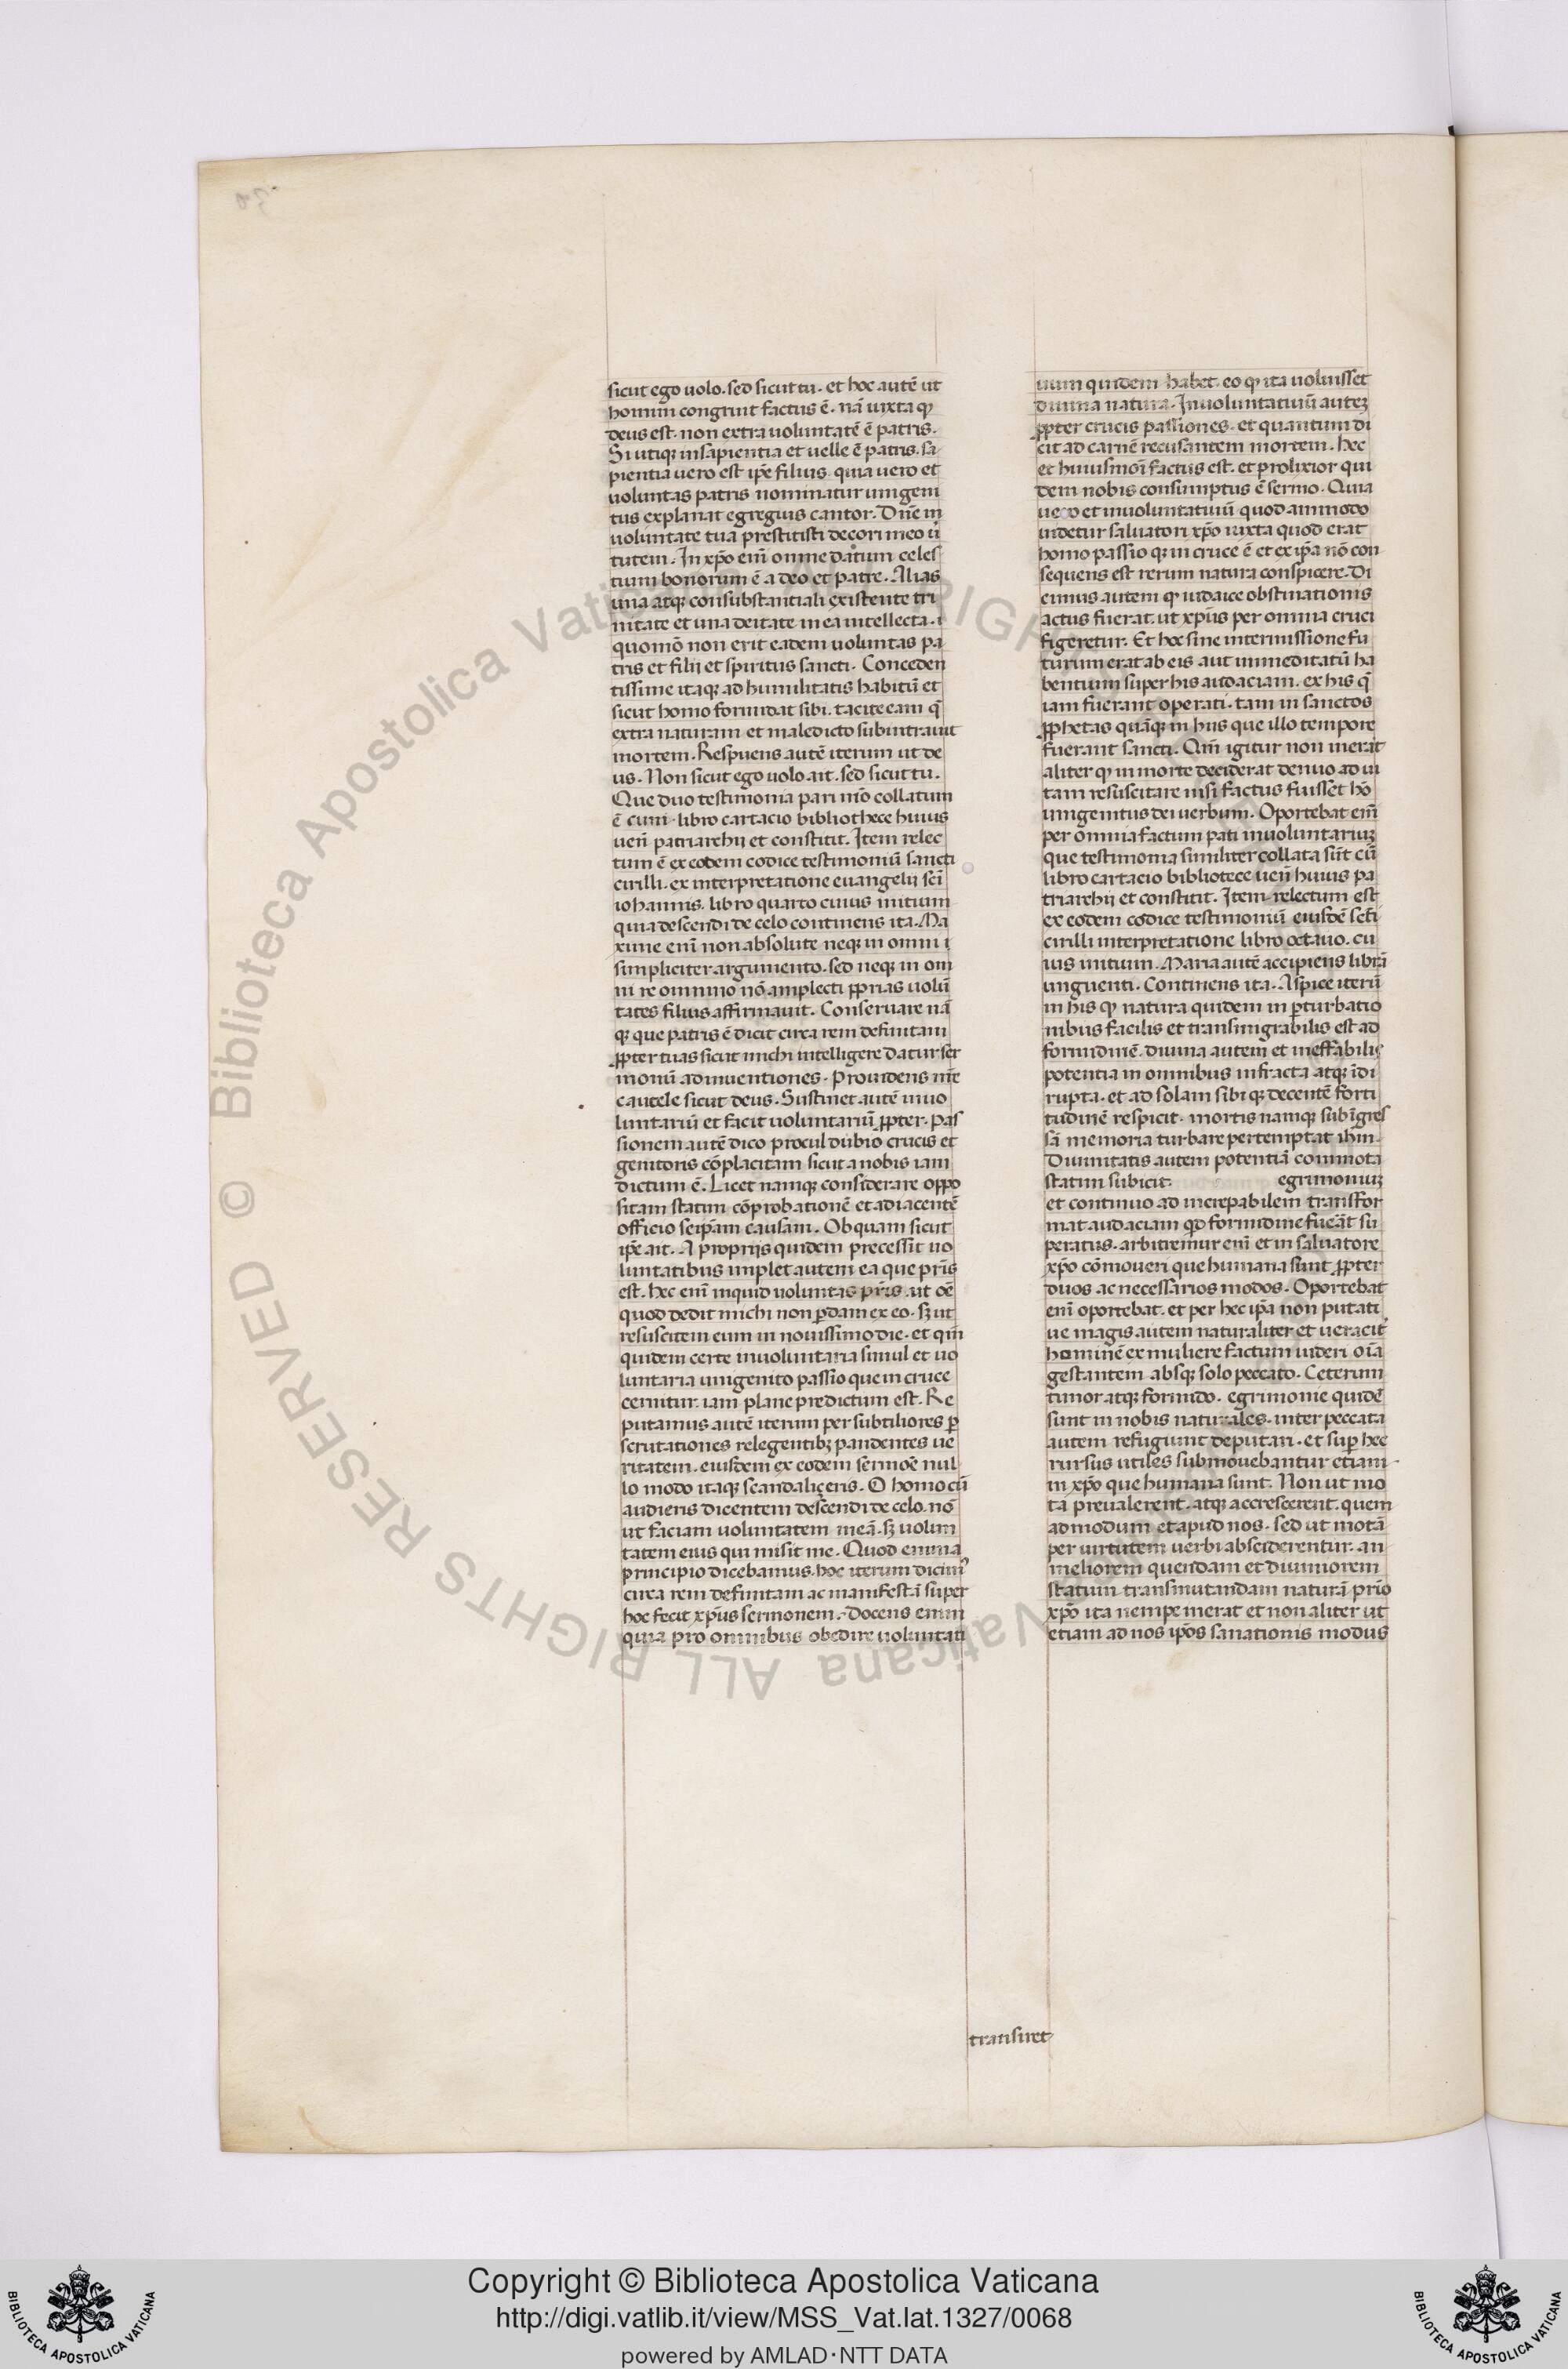 sicut ego uolo. sed sicut tu. et hoc autē ut
homini congruit factus ē. nā iuxta qꝫ
deus est. non extra uoluntatē ē patris.
Si utiqꝫ insapientia et uelle ē patris. sa
pientia uero est ip̄e filius. quia uero et
uoluntas patris nominatur unigeni
tus explanat egregius cantor. Dn̄e in
uoluntate tua prestitisti decori meo ui
tutem. In xp̄o enī omne datum celes
tium bonorum ē a deo et patre. Alias
una atqꝫ consubstantiali existente tri
nitate et una deitate in ea intellecta. i
quomō non erit eadem uoluntas pa
tris et filii et spiritus sancti. Conceden
tissime itaqꝫ ad humilitatis habitū et
sicut homo formidat sibi. tacite eam q̄
extra naturam et maledicto subintrauit
mortem. Respuens autē iterum ut de
us. Non sicut ego uolo ait. sed sicut tu.
Que duo testimonia pari mō collatum
ē cum libro cartacio bibliothece huius
uen̄ patriarchii et constitit. Item relec
tum ē ex eodem codice testimoniū sancti
cirilli. ex interpretatione euangelii sc̄i
iohannis. libro quarto cuius initium
quia descendi de celo continens ita. Ma
xime enī non absolute neqꝫ in omni i
simpliciter argumento. sed neqꝫ in om
ni re omnino nō amplecti ꝓprias uolū
tates filius affirmauit. Conseruare nā
qꝫ que patris ē dicit circa rem definitam
ꝓpter tuas sicut michi intelligere datur ser
monū adinuentiones. Prouidens me
cautele sicut deus. Sustinet autē inuo
luntariū et facit uoluntariū ꝓpter. pas
sionem autē dico procul dubio crucis et
genitoris cōplacitam sicut a nobis iam
dictum ē. Licet namqꝫ considerare oppo
sitam statim cōprobationē et adiacentē
officio seip̄am causam. Ob quam sicut
ip̄e ait. A proprijs quidem precessit uo
luntatibus implet autem ea que pr̄is
est. hec enī inquid uoluntas pr̄is. ut oē
quod dedit michi non ꝑdam ex eo. sꝫ ut
resuscitem eum in nouissimo die. et qm̄
quidem certe inuoluntaria simul et uo
luntaria unigenito passio que in cruce
cernitur. iam plane predictum est. Re
putamus autē iterum per subtiliores ꝑ
scrutationes relegentibꝫ pandentes ue
ritatem. eiusdem ex eodem sermōe nul
lo modo itaqꝫ scandaliçeris. O homo cū
audieris dicentem descendi de celo. nō
ut faciam uoluntatem meā. sꝫ uolun
tatem eius qui misit me. Quod enim a
principio dicebamus. hoc iterum dicimꝰ
circa rem definitam ac manifestā super
hoc fecit xp̄us sermonem. Docens enim
quia pro omnibus obedire uoluntati
uum quidem habet. eo qꝫ ita uoluisset
diuina natura. Inuoluntatiuū auteꝫ
ꝓpter crucis passiones. et quantum di
cit ad carnē recusantem mortem. hec
et huiusmōi factus est. et prolixior qui
dem nobis consumptus ē sermo. Quia
uero et inuoluntatiuū quod ammodo
uidetur saluatori xp̄o iuxta quod erat
homo passio qꝫ in cruce ē et ex ip̄a nō con
sequens est rerum natura conspicere. Di
cimus autem qꝫ iudaice obstinationis
actus fuerat. ut xp̄us per omnia cruci
figeretur. Et hoc sine intermissione fu
turum erat ab eis aut inmeditatū ha
bentium super his audaciam. ex his q̄
iam fuerant operati. tam in sanctos
ꝓphetas quāqꝫ in hiis que illo tempore
fuerant sancti. Qm̄ igitur non inerat
aliter qꝫ in morte deciderat denuo ad ui
tam resuscitare nisi factus fuisset hō
unigenitus dei uerbum. Oportebat enī
per omnia factum pati inuoluntariuꝫ
que testimonia similiter collata sūt cū
libro cartacio bibliotece uen̄ huius pa
triarchii et constitit. Item relectum est
ex eodem codice testimoniū eiusdē sc̄ti
cirilli interpretatione libro octauo. cu
ius initium. Maria autē accipiens librā
unguenti. Continens ita. Aspice iterū
in his qꝫ natura quidem in ꝑturbatio
nibus facilis et transmigrabilis est ad
formidinē. diuina autem et ineffabilis
potentia in omnibus infracta atqꝫ īdi
rupta. et ad solam sibi qꝫ decentē forti
tudinē respicit. mortis namqꝫ subīgres
sā memoria turbare pertemptat ihm̄.
Diuinitatis autem potentiā commota
statim subicit. egrimoniuꝫ
et continuo ad increpabilem transfor
mat audaciam qd̄ formidine fuerāt su
peratus. arbitremur enī et in saluatore
xp̄o cōmoueri que humana sunt ꝓpter
duos ac necessarios modos. Oportebat
enī oportebat. et per hec ip̄a non putati
ue magis autem naturaliter et ueracit̄
hominē ex muliere factum uideri oīa
gestantem absqꝫ solo peccato. Ceterum
timor atqꝫ formido. egrimonie quidē
sunt in nobis naturales. inter peccata
autem refugiunt deputari. et suꝑ hec
rursus utiles submouebantur etiam
in xp̄o que humana sunt. Non ut mo
ta preualerent. atqꝫ accrescerent. quem
admodum et apud nos. sed ut motā
per uirtutem uerbi absciderentur. an
meliorem quendam et diuiniorem
statum transmutandam naturā prio
xp̄o ita nempe inerat et non aliter ut
etiam ad nos ip̄os sanationis modus
transiret
Copyright © Biblioteca Apostolica Vaticana
http://digi.vatlib.it/view/MSS_Vat.lat.1327/0068
powered by AMLAD·NTT DATA
BIBLIOTECA APOSTOLICA VATICANA
BIBLIOTECA APOSTOLICA VATICANA
© Biblioteca Apostolica Vaticana ALL RIGHTS RESERVED